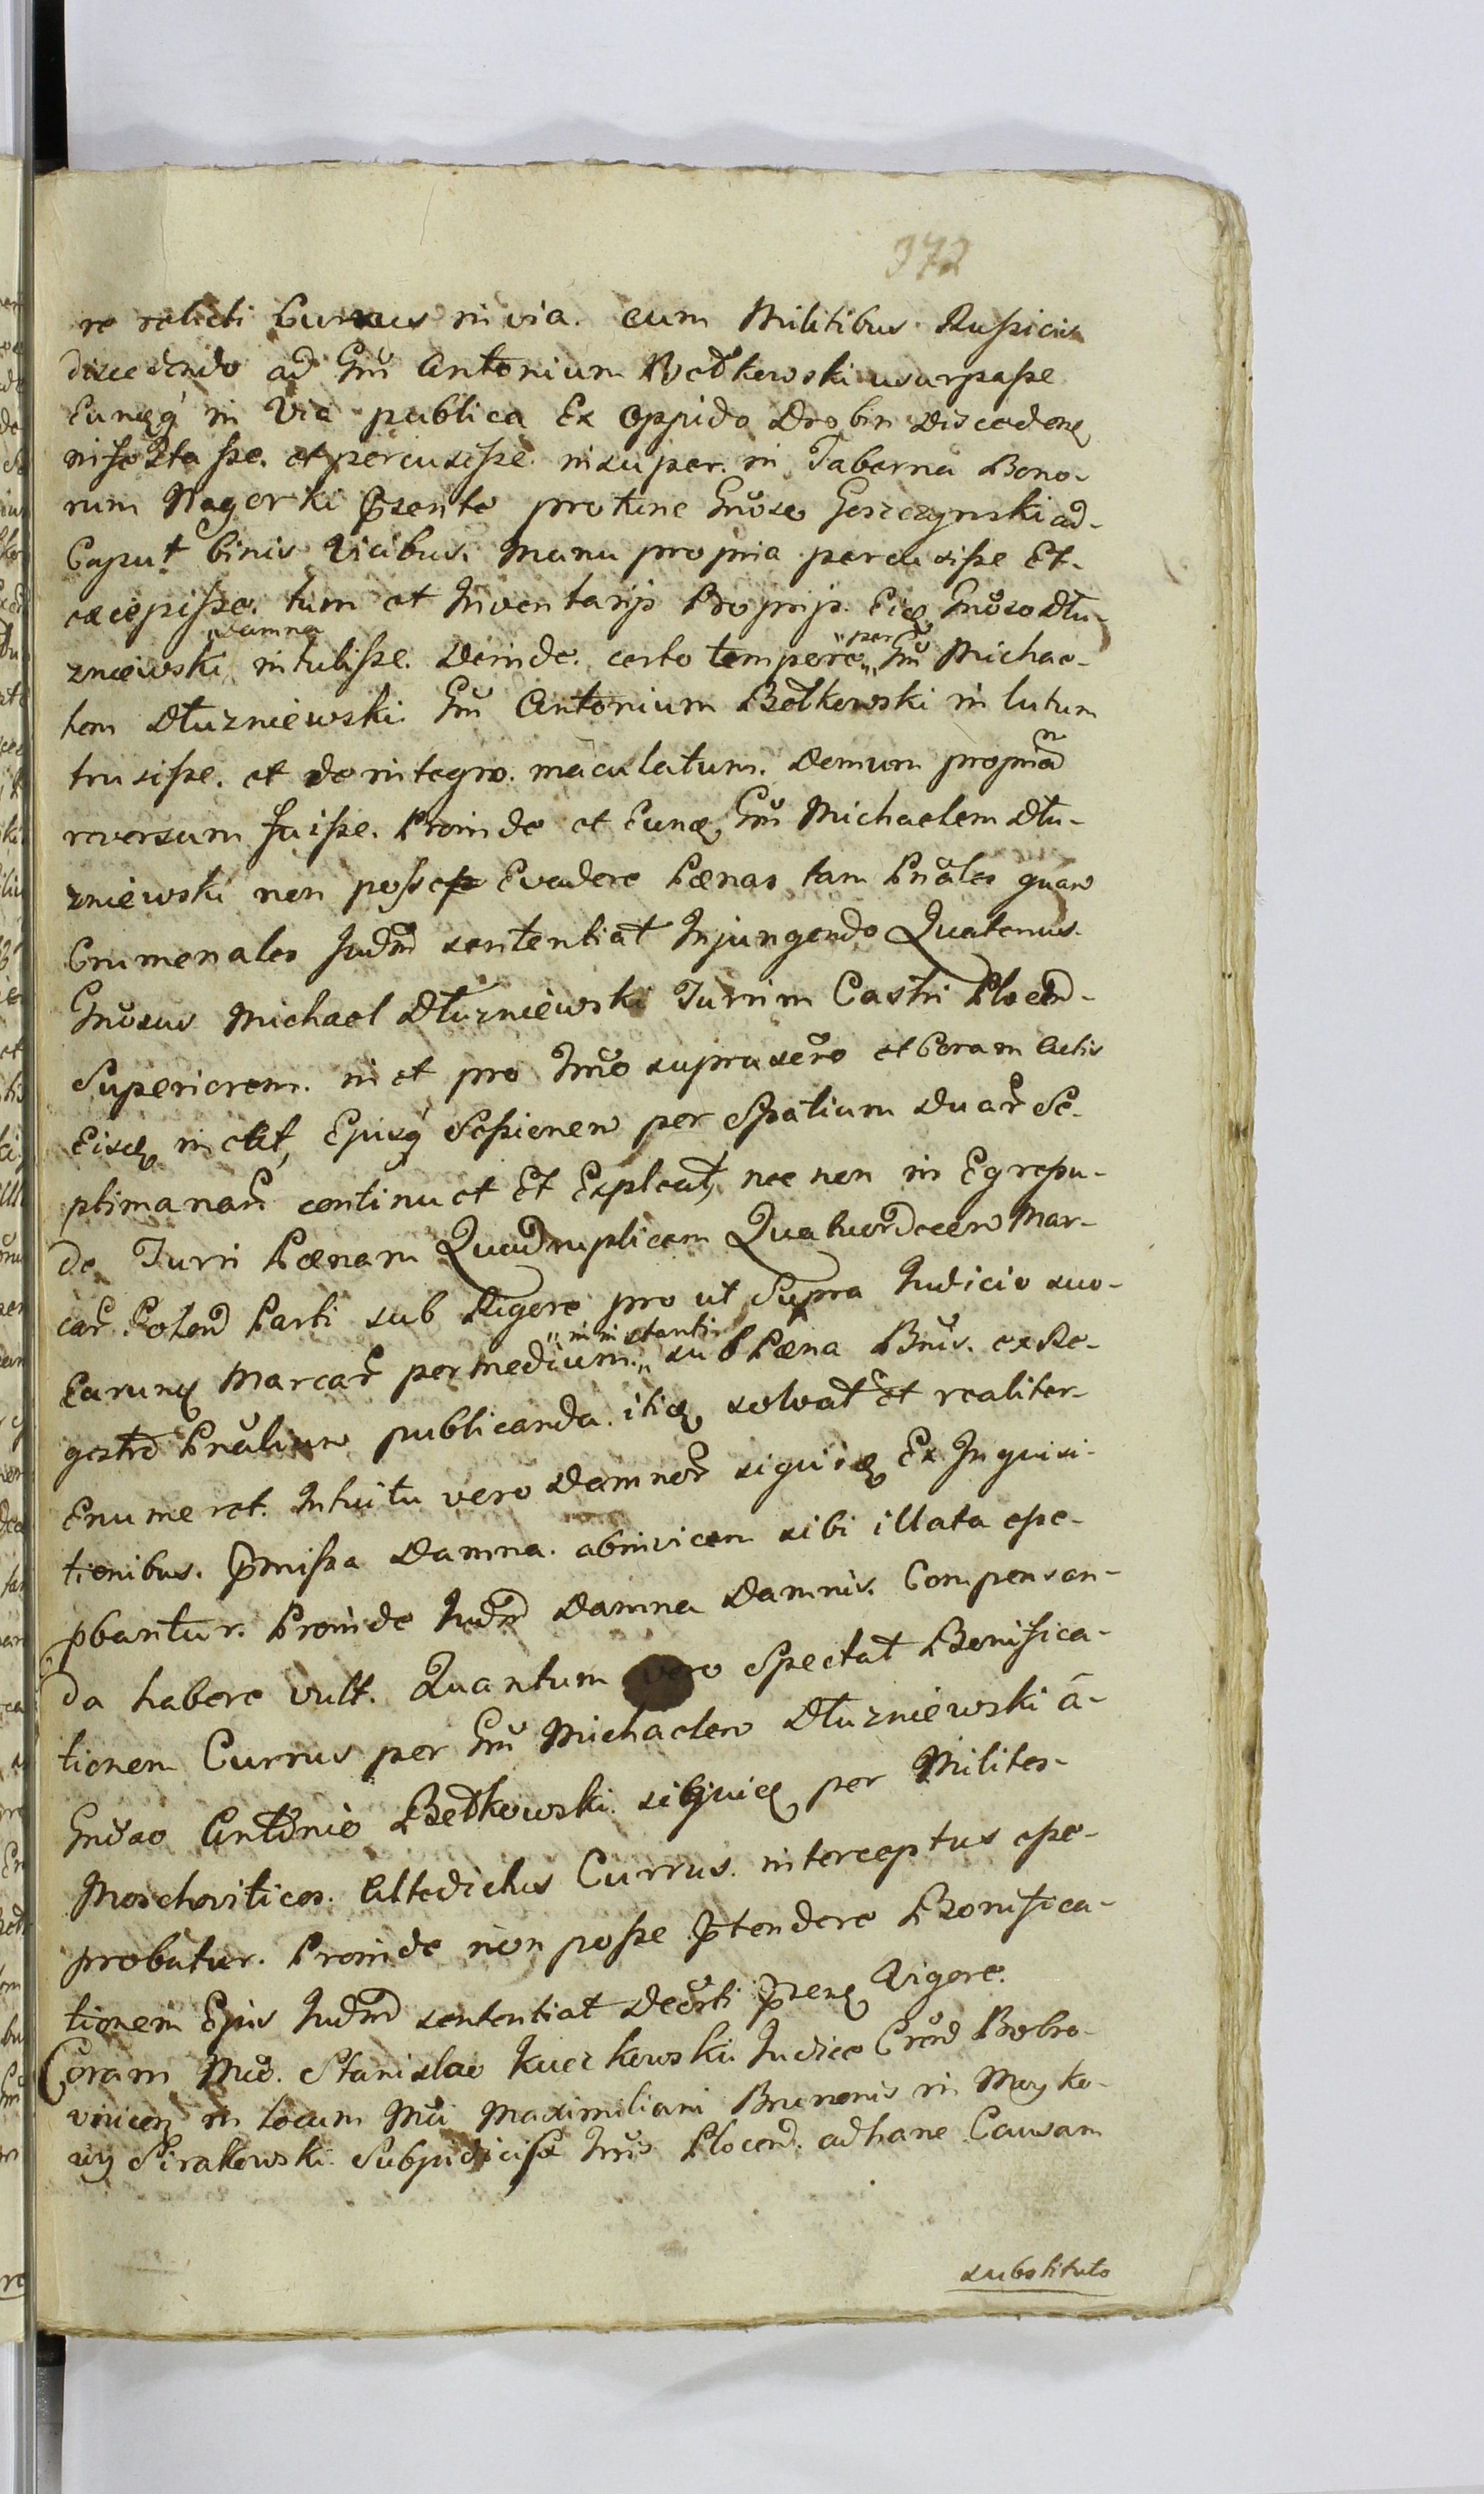 372
re relicti Currus in via. cum Militibus Russicis
discedendo ad Gnũ Antonium Bołkowski usurpasse
Eunqq in Via publica Ex Oppido Drobin Disceden
infestasse. et percusisse insuper. in Taberna Bono-
rum Nagorki Psente protunc Gnoso Goszczynski ad-
Caput binis Vicibus. Manu propria percusisse Et-
excepisse. tum et Inventarijs Proprijs. Eidq Gnoso Dłu-
zniewski "Damna intulisse. Deinde. certo tempore "per" Gnũ Michae-
lem Dłuzniewski Gnũ Antonium Bołkowski in lutum
trusisse. et de integro. maculatum. Demum propriam
reversum fuisse. Proinde et Eundq Gnũ Michaelem Dłu-
zniewski non posse Evadere Pænas tam Pnales quam
Crumenales Judm sententiat Injungendo Quatenus.
Gnosus Michael Dłuzniewski Turrim Castri Plocen-
Superiorem. in et pro Tmo suprascro et Coram Actis
Eisdq in eat, Ejusq Sessionem per Spatium Duar Se-
ptimanar continuet Et Expleat, nec non in Egressu-
de Turri Pænam Quadruplicem Quatuordecem Mar-
car Polon Parti sub Rigore pro ut Supra Judicio suo-
Earundq Marcar per medium. "in instanti" sub Pæna Bnis. ex Re-
gestro Pnalium publicanda. itidq solvat et realiter-
Enumeret. Intuitu vero Damnor siquidq Ex Inquisi-
tionibus. Pmissa Damna. abinvicem sibi illata esse-
pbantur. Proinde Judm Damna Damnis. Compensan-
da habere vult. Quantum vero Spectat Bonifica-
tionem Currus per Gnũ Michaelem Dłuzniewski á-
Gnoso Antonio Bołkowski siquidq per Milites-
Moschoviticos. Altedictus Currus. interceptus esse-
probatur. Proinde non posse Ptendere Bonifica-
tionem Ejus Judm sententiat Decrti Psen Vigore.
Coram Mco. Stanislao Kuczkowski Judice Crali Bobro-
vincen in locum Mci Maximiliani Brunonis in Myko-
wy Sirakowski Subjudicis Tris Plocen. ad hanc Causam
substituto